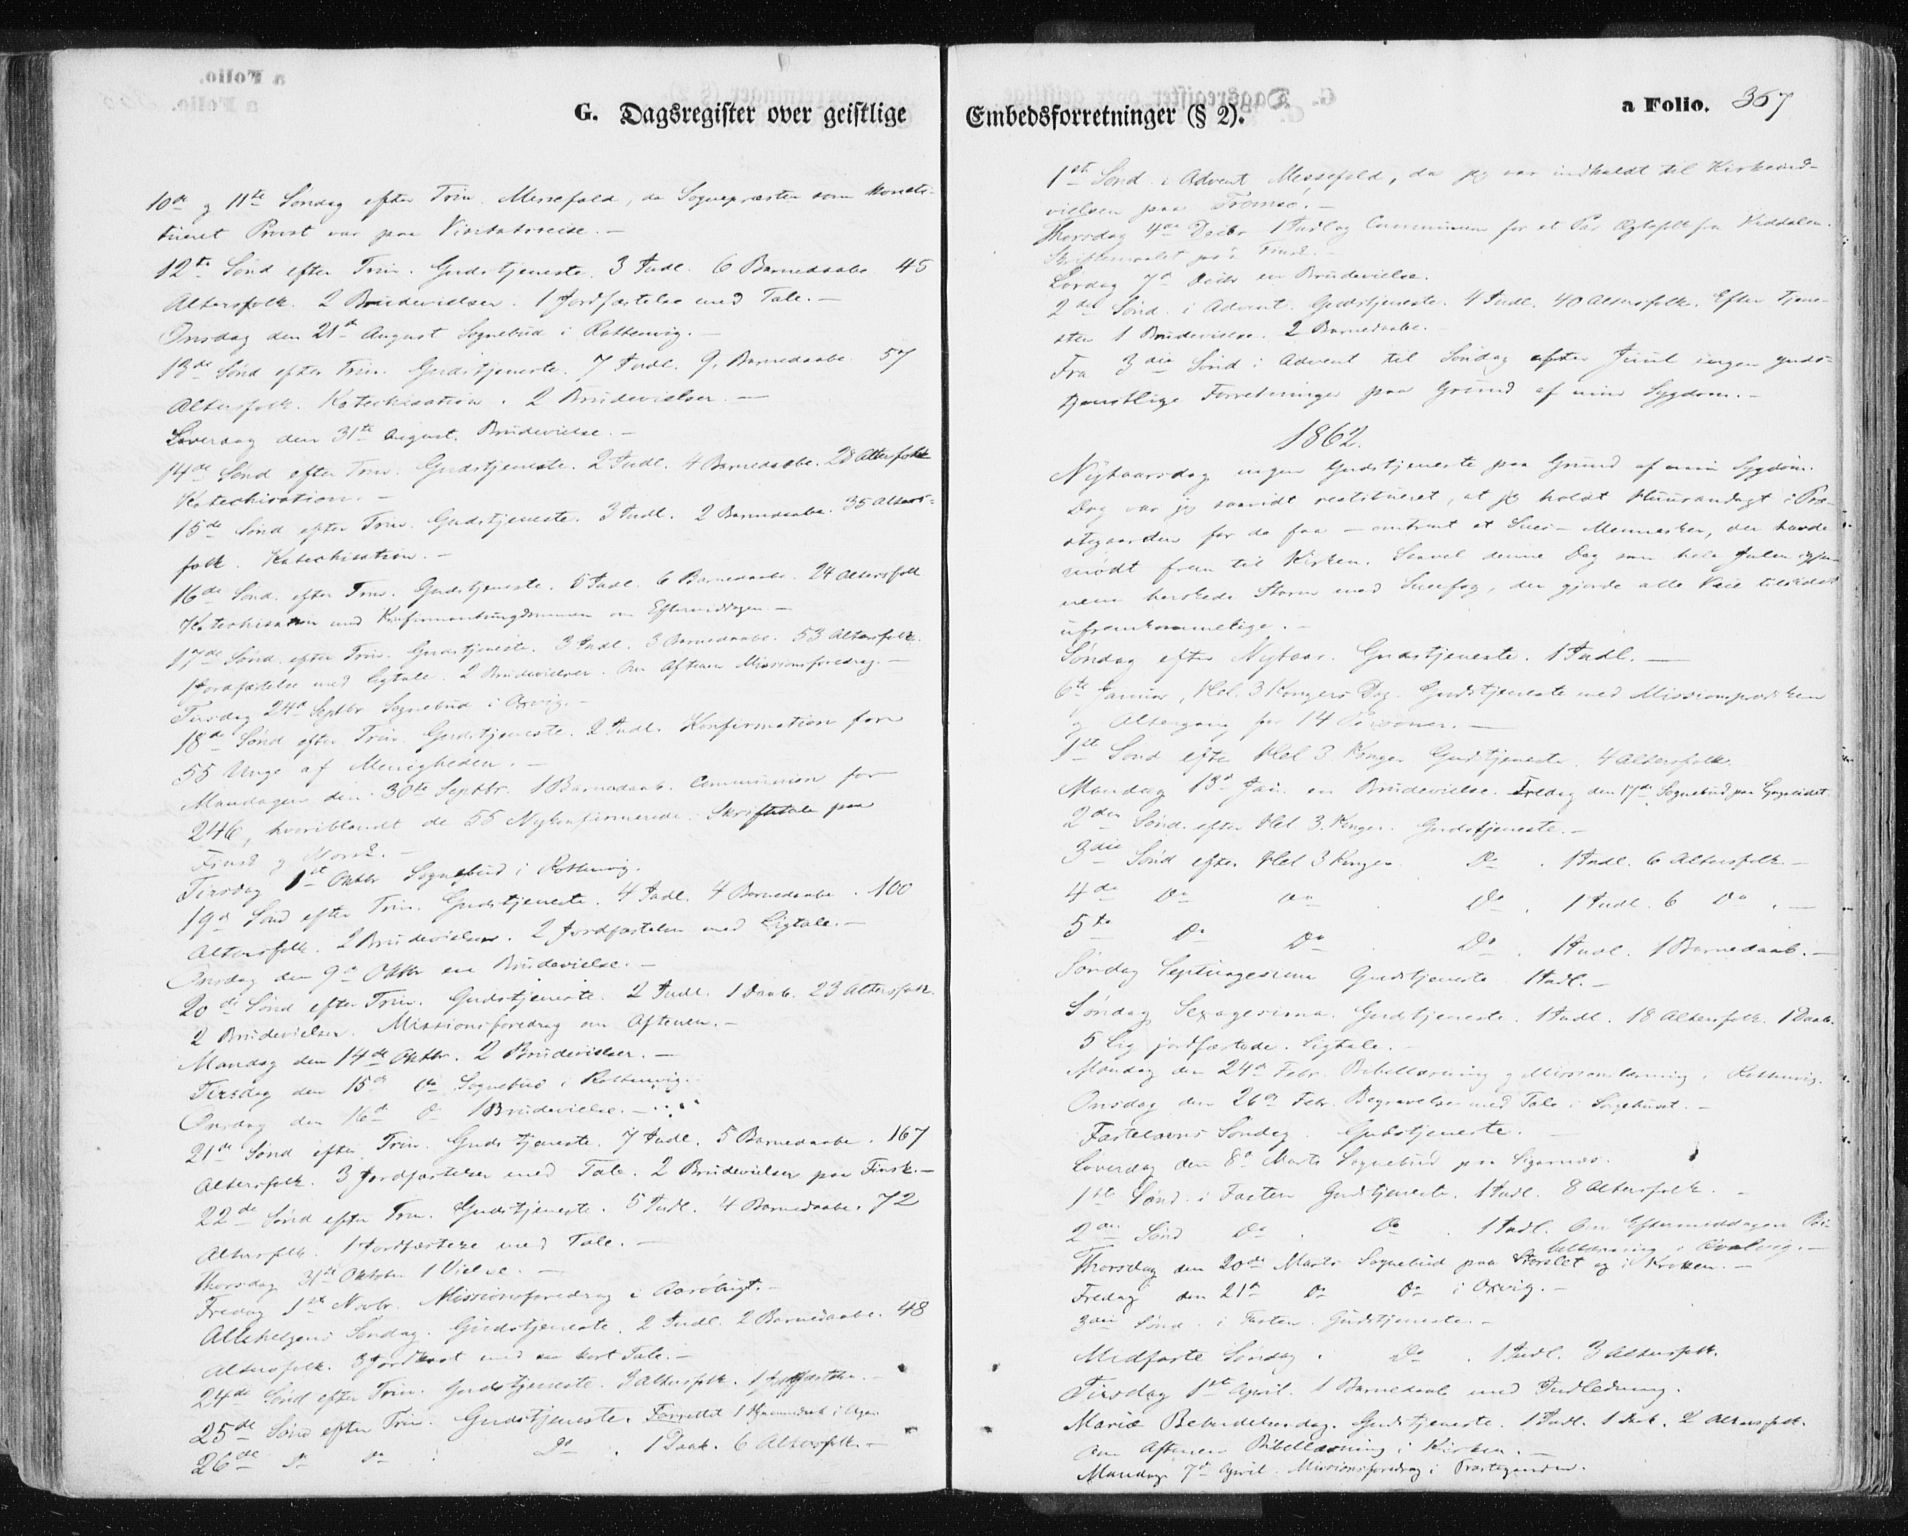 G. Dagsregister over geistlige
10de og 11te Søndag efter Trin. Messefald, da Sognepræsten som konsti-
tueret Provst var paa Visitatsreise. —
12te Sønd efter Trin. Gudstjeneste. 3 Indl. 6 Barnedaabe. 45
Altersfolk. 2 Brudevielser. 1 Jordfæstelse med Tale. —
Onsdag den 21de August Sognebud i Rottenvig. —
13de Sønd efter Trin. Gudstjeneste. 7 Indl. 9 Barnedaabe. 57
Altersfolk. Katechisation. 2 Brudevielser. —
Løverdag den 31te August. Brudevielse. —
14de Sønd efter Trin. Gudstjeneste. 2 Indl. 4 Barnedaabe. 28 Altersfolk
Katechisation. —
15de Sønd efter Trin. Gudstjeneste. 3 Indl. 2 Barnedaabe. 35 Alters-
folk. Katechisation. —
16de Sønd. efter Trin. Gudstjeneste. 5 Indl. 6 Barnedaabe. 24 Altersfolk
Katechisation med Konfirmantungdommen om Eftermiddagen —
17de Sønd. efter Trin. Gudstjeneste. 3 Indl. 3 Barnedaabe. 53 Altersfolk.
1 Jordfæstelse med Ligtale. 2 Brudevielser. Om Aftenen Missionsforedrag. —
Tirsdag 24de Septbr Sognebud i Oxvig. —
18de Sønd efter Trin. Gudstjeneste. 2 Indl. Konfirmation for
55 Unge af Menigheden. —
Mandagen den 30te Septbr. 1 Barnedaab. Communion for
246, hvoriblandt de 55 Nykonfirmerede. Skriftetale paa
Finsk og Norsk. —
Tirsdag 1ste Oktbr Sognebud i Rottenvig.
19de Sønd efter Trin. Gudstjeneste. 4 Indl. 4 Barnedaabe. 100
Altersfolk. 2 Brudevielser. 2 Jordfæstelser med Ligtale. —
Onsdag den 9de Oktbr en Brudevielse. —
20de Sønd efter Trin. Gudstjeneste. 2 Indl. 1 Daab. 23 Altersfolk.
2 Brudevielser. Missionsforedrag om Aftenen. —
Mandag den 14de Oktbr. 2 Brudevielser. —
Tirsdag den 15de Do Sognebud i Rottenvig.
Onsdag den 16de Do 1 Brudevielse. —
21de Sønd efter Trin. Gudstjeneste. 7 Indl. 5 Barnedaabe. 167
Altersfolk. 3 Jordfæstelser med Tale. 2 Brudevielser paa Finsk. —
22de Sønd efter Trin. Gudstjeneste. 5 Indl. 4 Barnedaabe. 72
Altersfolk. 1 Jordfæstelse med Tale. —
Thorsdag 31te Oktobr. 1 Vielse. —
Fredag 1ste Novbr. Missionsforedrag i Aarøbugt. —
Allehelgens Søndag. Gudstjeneste. 2 Indl. 2 Barnedaabe. 48
Altersfolk. 3 Jordfæst med en kort Tale. —
24de Sønd efter Trin. Gudstjeneste. 3 Altersfolk. 1 Jordfæstelse. —
25de Sønd efter Trin. Gudstjeneste. Forrettet 1 Hjemmedaab i
26de Do Do Do. 1 Daab. 6 Altersfolk. —
Embedsforretninger (§ 2).
a Folio. 367
1ste Sønd. i Advent Messefald, da jeg var indkaldt til Kirkeind-
vielsen paa Tromsø. —
Thorsdag 4de Decbr 1 Indl og Communion for et Par Ægtefolk fra Kiddalen.
Skriftemaalet paa Finsk. —
Lørdag 7de Decbr en Brudevielse.
2den Sønd. i Advent. Gudstjeneste. 4 Indl. 40 Altersfolk. Efter Tjene-
sten 1 Brudevielse. 2 Barnedaabe. —
Fra 3die Sønd i Advent til Søndag efter Juul ingen guds-
tjenstlige Forretninger paa Grund af min Sygdom. —
1862.
Nytaarsdag ingen Gudstjeneste paa Grund af min Sygdom.
Dog var jeg saavidt restitueret, at jeg holdt Huusandagt i Præ-
stegaarden for de faa — omtrent et Snes — Mennesker, der havde
mødt frem til Kirken. Saavel denne Dag som hele Julen igjen-
nem herskede Storm med Sneefog, der gjorde alle Veie tillands
ufremkommelige. —
Søndag efter Nytaar. Gudstjeneste. 1 Indl. —
6te Januar, Hel. 3 Kongers Dag. Gudstjeneste med Missionsprædiken
og Altergang for 14 Personer. —
1ste Sønd efter Hel 3 Konger Gudstjeneste. 4 Altersfolk.
Mandag 13de Jan. en Brudevielse. Fredag den 17de Sognebud paa
2den Sønd. efter Hel 3 Konger. Gudstjeneste. —
3die Sønd efter Hel 3 Konger Do. 1 Indl. 6 Altersfolk. —
4de Do Do Do. 1 Indl. 6 Do. —
5te Do Do Do. 1 Indl. 1 Barnedaab. —
Søndag Septuagesima Gudstjeneste. 1 Indl. —
Søndag Sexagesima. Gudstjeneste. 1 Indl. 18 Altersfolk. 1 Daab.
5 Lig jordfæstede. Ligtale. —
Mandag den 24de Febr. Bibellæsning og Missionslæsning i Rottenvig.
Onsdag den 26de Febr. Begravelse med Tale i Sørgehuset. —
Fastelavns Søndag. Gudstjeneste. —
Løverdag den 8de Marts Sognebud paa
1ste Sønd. i Fasten Gudstjeneste. 1 Indl. 8 Altersfolk. —
2den Sønd Do. Do. 1 Indl. Om Eftermiddagen Bi-
bellæsning i Kvalvig. —
Thorsdag den 20de Marts Sognebud paa Storslet og i Kroken. —
Fredag den 21de Do Do i Oxvig. —
3die Sønd. i Fasten. Gudstjeneste. —
Midfaste Søndag. Do. 1 Indl. 3 Altersfolk.
Tirsdag 1ste April. 1 Barnedaab med Indledning.
Mariæ Bebudelsesdag. Gudstjeneste. 1 Indl. 1 Daab. 2 Altersfolk.
Om Aftenen Bibellæsning i Kirken. —
Mandag 7de April. Missionsforedrag i Præstegaarden.